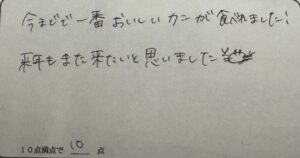 今までで一番おいしいカニが食べれました!
来年もまた来たいと思いました
10点満点で 10 点